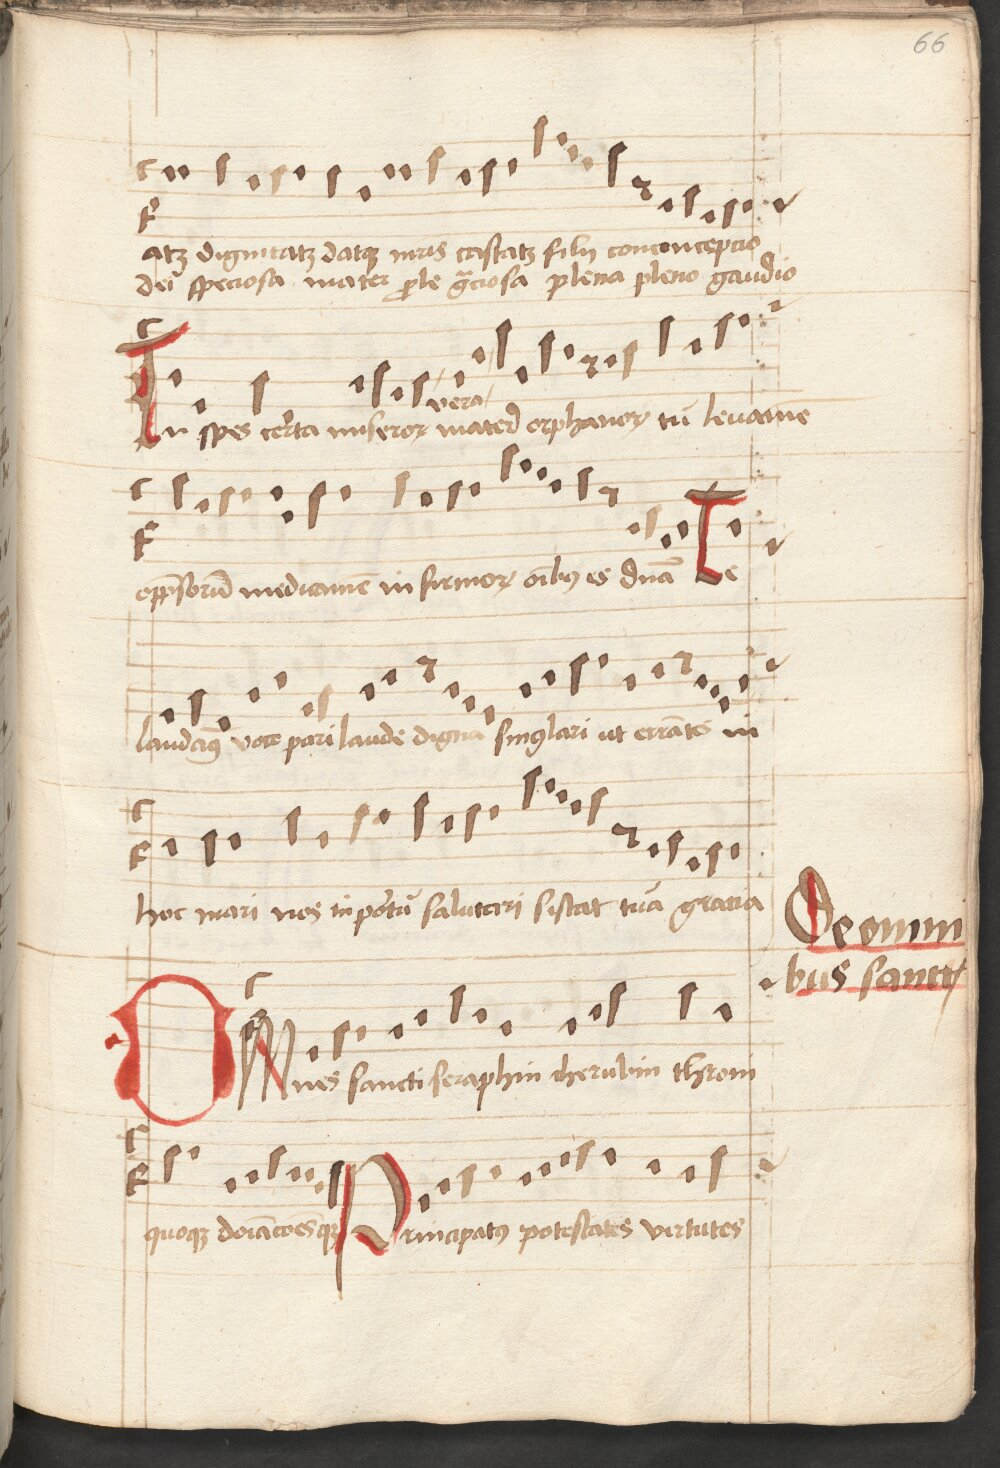 66
atz dignitatz datqz iuris castatz filii conconcepcio
dei speciosa mater ple gciosa plena pleno gaudio
vera
Tu spes certa miseror mater orphanor tu levame
oppssoru medicame infirmor oibz es dna Te
laudam voce pari laude digna singlari ut errates in
hoc mari nos in portu salutari sistat tua gratia
De omni
bus sanct
Omnes sancti seraphin cherubin throni
quoqz doiacoesqz Principatz potestates virtutes